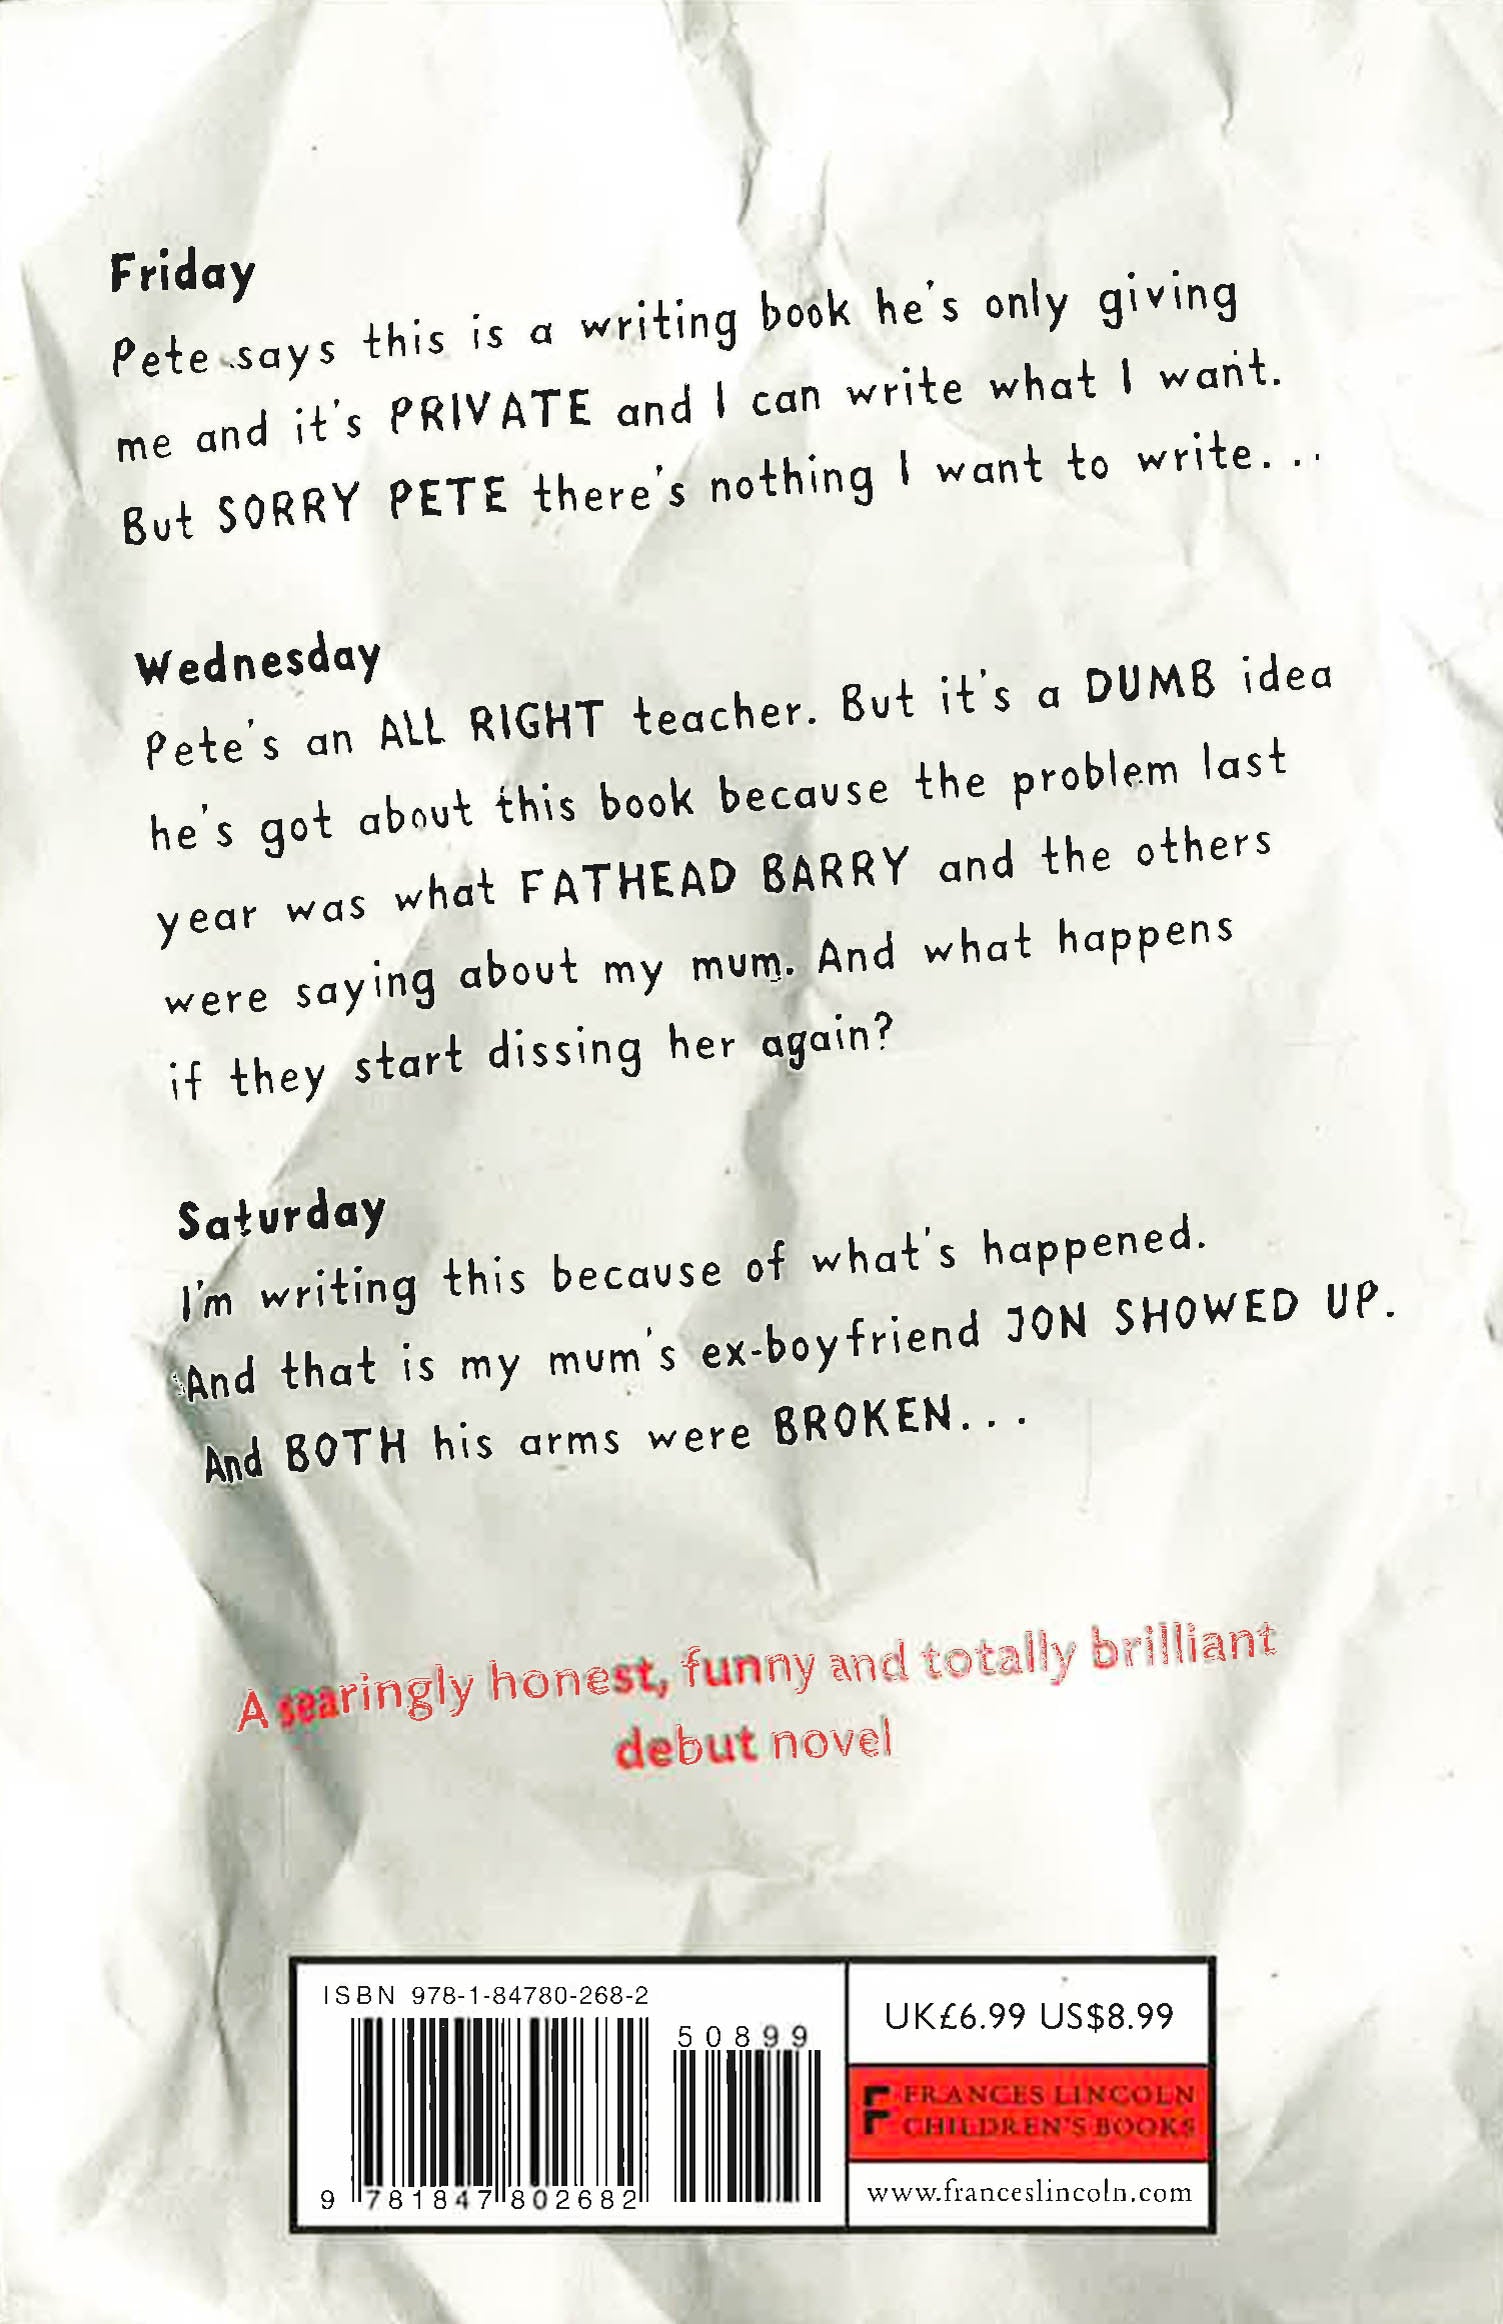 Friday
Pete says this is a writing book he's only giving
me and it's PRIVATE and I can write what I want.
But SORRY PETE there's nothing I want to write...
Wednesday
Pete's an ALL RIGHT teacher. But it's a DUMB idea
he's got about this book because the problem last
year was what FATHEAD BARRY and the others
were saying about my mum. And what happens
if they start dissing her again?
Saturday
I'm writing this because of what's happened.
And that is my mum's ex-boyfriend JON SHOWED UP.
And BOTH his arms were BROKEN...
A searingly honest, funny and totally brilliant
debut novel
ISBN 978-1-84780-268-2
50899
9 781847 802682
UK£6.99 US$8.99
FRANCES LINCOLN
CHILDREN'S BOOKS
www.franceslincoln.com